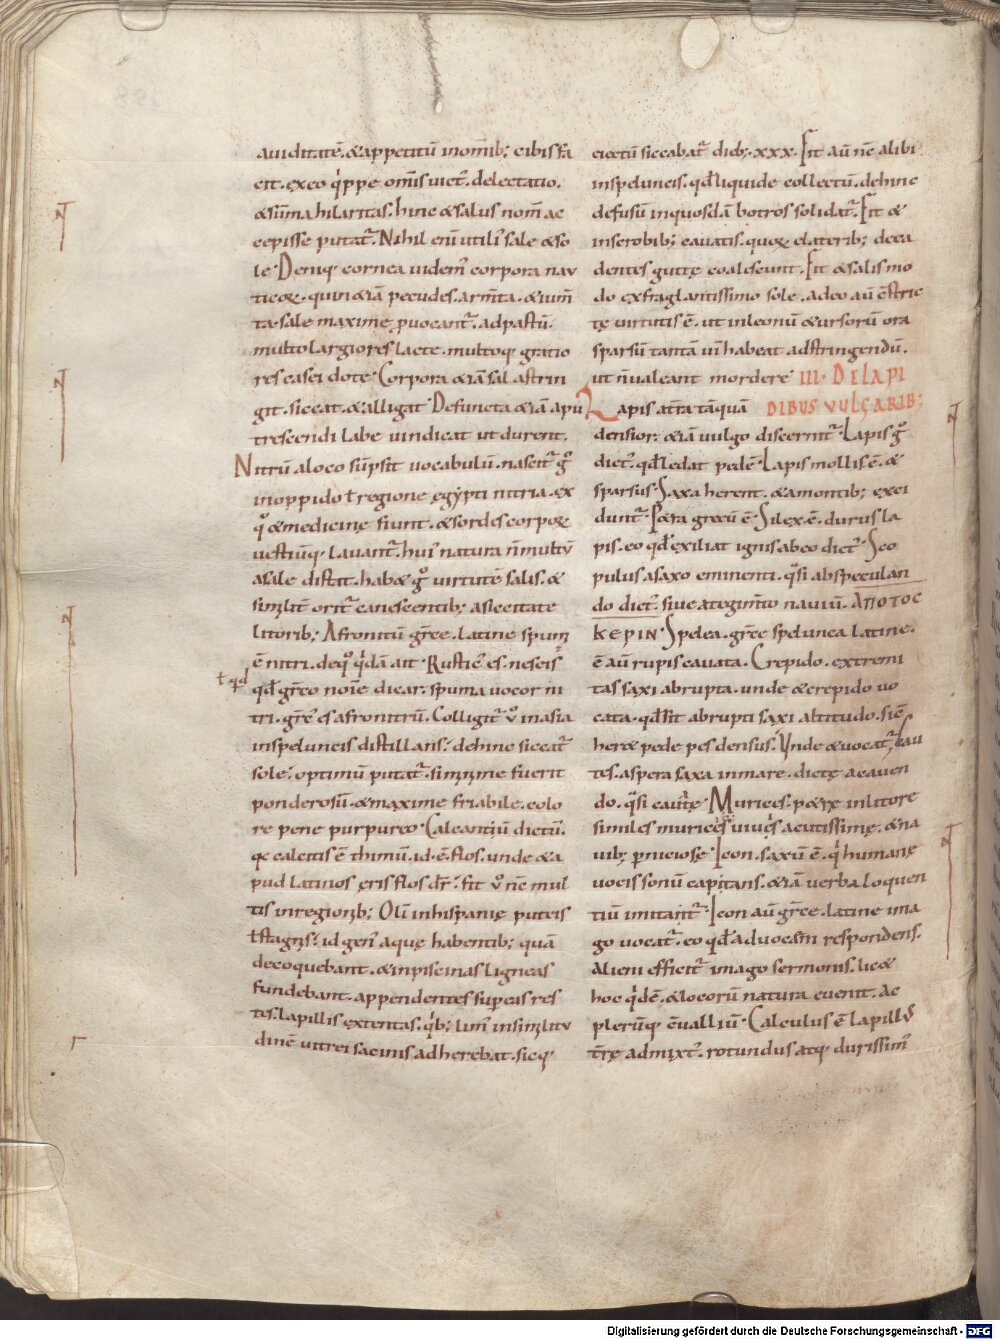 auiditatē. &appetitū inomīb; cibis fa
cit. exeo q̇ppe omīs uict᷒. delectatio.
&sūma hilaritas. hinc &salus nom̄ ac
cepisse putat᷑. Nihil enī utili᷒ sale &so
le. Deniq; cornea uidem᷒ corpora nau
ticoꝝ. quin&iā pecudes. arm̄ta. &ium̄
ta. sale maxime ꝓuocant᷑. adpastū.
multo largiores lacte. multoq; gratio
res casei dote. Corpora &iā sal astrin
git. siccat. &alligat. Defuncta &iā apu
trescendi labe uindicat ut durent.
Nitrū aloco sūpsit uocabulū. nascit᷑ g°
inoppido ł regione ęgypti nitria. ex
q° &medicinę fiunt. &sordes corpoꝝ
uestiūq; lauant᷑. hui᷒ natura n̄ multū
asale distat. hab& g° uirtutē salis. &
similit̄ orit᷑ canescentib; asiccitate
litorib; Afronitū grēce. latine spuma
ē nitri. deq° q̇dā ait. Rustic᷒ es. nescis
ł qd
qđ grēco noīe dicar. spuma uocor ni
tri. grēc᷒ es afronitrū. Colligit᷑ ů inasia
inspeluncis distillans. dehinc siccat᷑
sole. optimū putat᷑. siminime fuerit
ponderosū. &maxime friabile. colo
re pene purpureo. Calcantiū dictū.
qᷓ calcitis ē thimū. id. ē. flos. unde &a
pud latinos ęris flos dr̄. fit ů nc̄ mul
tis inregionib; Olī inhispanię puteis
ł stagnis. id gen᷒ aquę habentib; quā
decoquebant. &inpiscinas ligneas
fundebant. appendentes super eis res
tes. lapillis extentas. q̇b; lim᷒ insimilitu
dinē uitrei sacinis adherebat. sicq;
eiectū siccabat᷑ dieb; xxx. Fit aū nc̄ alibi
inspeluncis. qđ liquide collectū. dehinc
defusū inquosdā botros solidat᷑. Fit &
inscrobib; cauatis. quoꝝ elaterib; deca
dentes guttę coalescunt. Fit &salis mo
do exfraglantissimo sole. adeo aū ē stric
tę uirtutis ē. ut inleonū &ursorū ora
sparsū tantā uī habeat adstringendū.
ut n̄ ualeant mordere. III. DE LAPI
DIBUS VULGARIB;
Lapis at̄ra tāquā
densior. &iā uulgo discernit᷑. Lapis g°
dict᷒. qđ ledat pedē. Lapis mollis ē. &
sparsus. Saxa herent. &amontib; exci
dunt᷑. P&ra grecū ē. Silex ē. durus la
pis. eo qđ exiliat ignis abeo dict᷒. Sco
pulus asaxo eminenti. qᷓsi abspeculan
do dict᷒. siue ategim̄to nauiū. ΑΠΟΤΟC
ΚΕΡΙΝ. Spelea. grēce spelunca latine.
ē aū rupis cauata. Crepido. extremi
tas saxi abrupta. unde &crepido uo
cata. qđ sit abrupti saxi altitudo. sic ē
her& pede pes densus. Unde &uocat᷑. Cau
tes. aspera saxa inmare. dictę acauen
do. qᷓsi cautę. Murices. p&rę inlitore
similes muricęs uiuęs acutissimę. &na
uib; ꝑniciosę. Icon. saxū ē. q̇ humanę
uocis sonū capitans. &iā uerba loquen
tiū imitant᷑. Icon aū grēce. latine ima
go uocat᷑. eo qđ aduocem respondens.
alieni efficit᷑ imago sermonis. lic&
hoc q̇dē. &locorū natura euenit. ac
plerūq; ēualliū. Calculus ē lapillus
tr̄ę admixt᷒. rotundus atq; durissim᷒